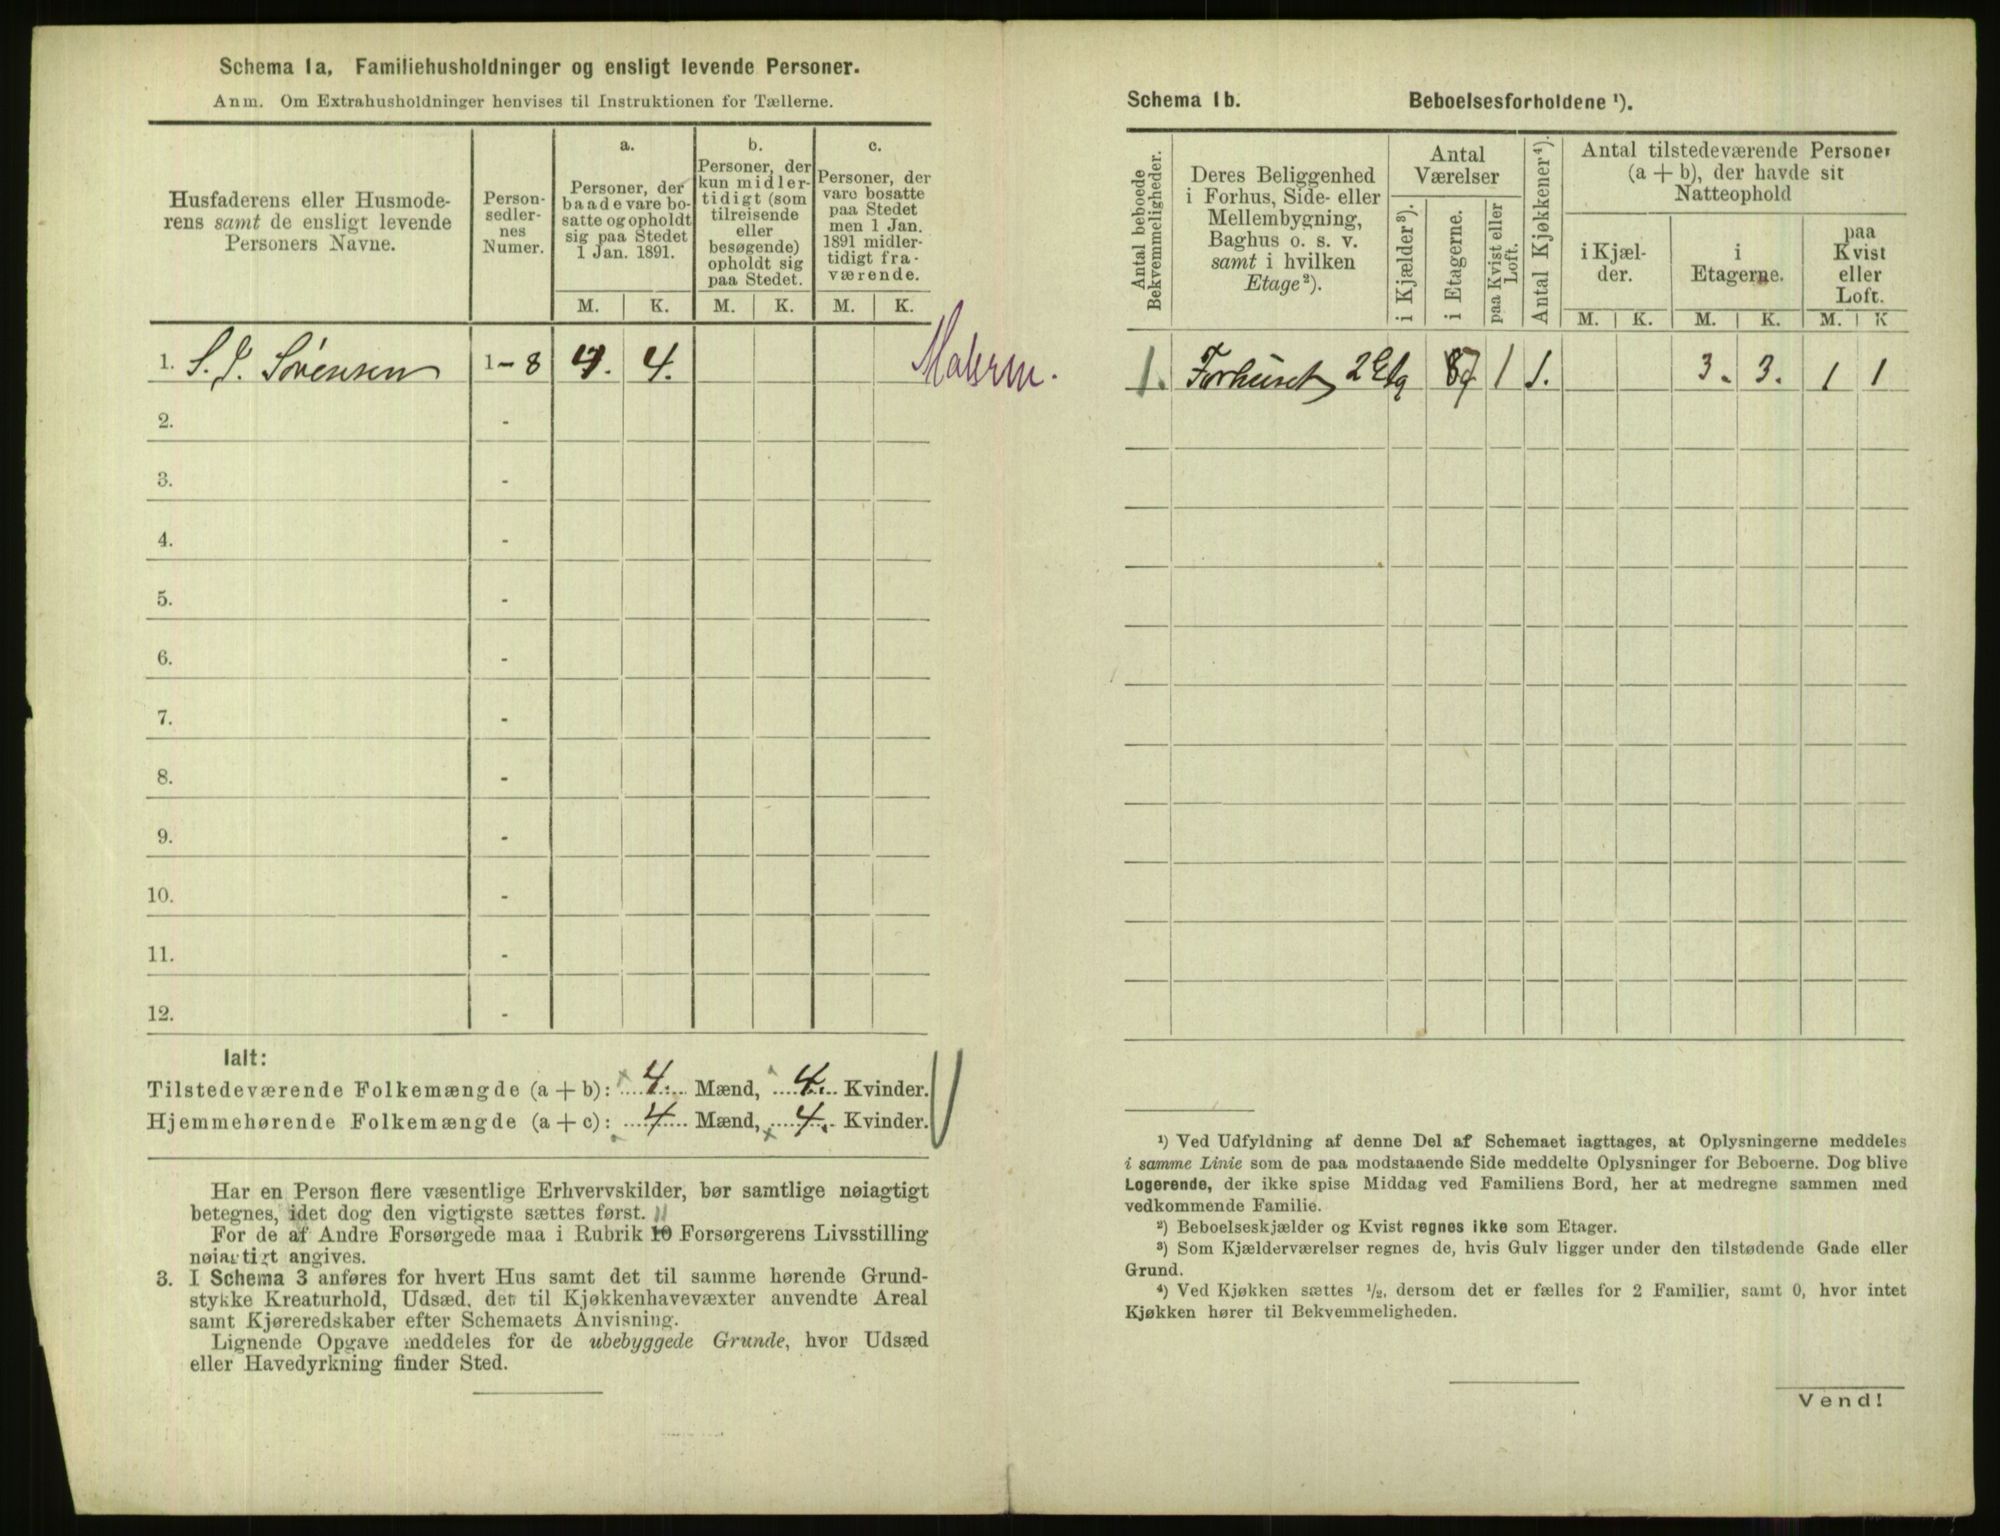 Schema 1a. Familiehusholdninger og ensligt levende Personer.
Anm. Om Extrahusholdninger henvises til Instruktionen for Tællerne.
Husfaderens eller Husmode-
rens samt de ensligt levende
Personers Navne.
Person-
sedler-
nes
Numer.
a.
Personer, der
baade vare bo-
satte og opholdt
sig paa Stedet
1 Jan. 1891.
b.
Personer, der
kun midler-
tidigt (som
tilreisende
eller
besøgende)
opholdt sig
paa Stedet.
c.
Personer, der
vare bosatte
paa Stedet
men 1 Jan.
1891 midler-
tidigt fra-
værende.
M. K. M. K. M. K.
1. S. J. Sörensen 1 - 8 4. 4.
2. -
3. -
4. -
5. -
6. -
7. -
8. -
9. -
10. -
11. -
12. -
Ialt:
Tilstedeværende Folkemængde (a + b): 4. Mænd, 4. Kvinder.
Hjemmehørende Folkemængde (a + c): 4 Mænd, 4. Kvinder.
Har en Person flere væsentlige Erhvervskilder, bør samtlige nøiagtigt
betegnes, idet dog den vigtigste sættes først.
For de af Andre Forsørgede maa i Rubrik 10 Forsørgerens Livsstilling
nøiagtigt angives.
3. I Schema 3 anføres for hvert Hus samt det til samme hørende Grund-
stykke Kreaturhold, Udsæd, det til Kjøkkenhavevæxter anvendte Areal
samt Kjøreredskaber efter Schemaets Anvisning.
Lignende Opgave meddeles for de ubebyggede Grunde, hvor Udsæd
eller Havedyrkning finder Sted.
Schema 1b. Beboelsesforholdene ¹).
Antal beboede
Bekvemmeligheder.
Deres Beliggenhed
i Forhus, Side- eller
Mellembygning,
Baghus o. s. v.
samt i hvilken
Etage ²).
Antal
Værelser
i Kjælder ³).
i Etagerne.
paa Kvist eller
Loft.
Antal Kjøkkener ⁴).
Antal tilstedeværende Personer
(a + b), der havde sit
Natteophold
i Kjæl-
der.
i
Etagerne.
paa
Kvist
eller
Loft.
M. K. M. K. M. K
1. Forhuset 2 Etg 1 1. 3. 3. 1 1
¹) Ved Udfyldning af denne Del af Schemaet iagttages, at Oplysningerne meddeles
i samme Linie som de paa modstaaende Side meddelte Oplysninger for Beboerne. Dog blive
Logerende, der ikke spise Middag ved Familiens Bord, her at medregne sammen med
vedkommende Familie.
²) Beboelseskjælder og Kvist regnes ikke som Etager.
³) Som Kjælderværelser regnes de, hvis Gulv ligger under den tilstødende Gade eller
Grund.
⁴) Ved Kjøkken sættes ½, dersom det er fælles for 2 Familier, samt 0, hvor intet
Kjøkken hører til Bekvemmeligheden.
Vend!